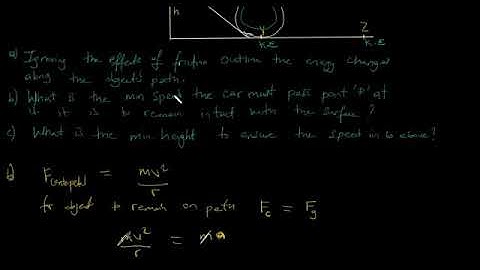 h
Y
Z
K.E
K.E
a) Ignoring the effects of friction outline the energy changes
along the objects path.
b) What is the min speed the car must pass point 'P' at
is it is to remain intact with the surface?
c) What is the min height to ensure the speed in b above?
b) F centripetal = mv²/r
for object to remain on path Fc = Fg
mv²/r = m